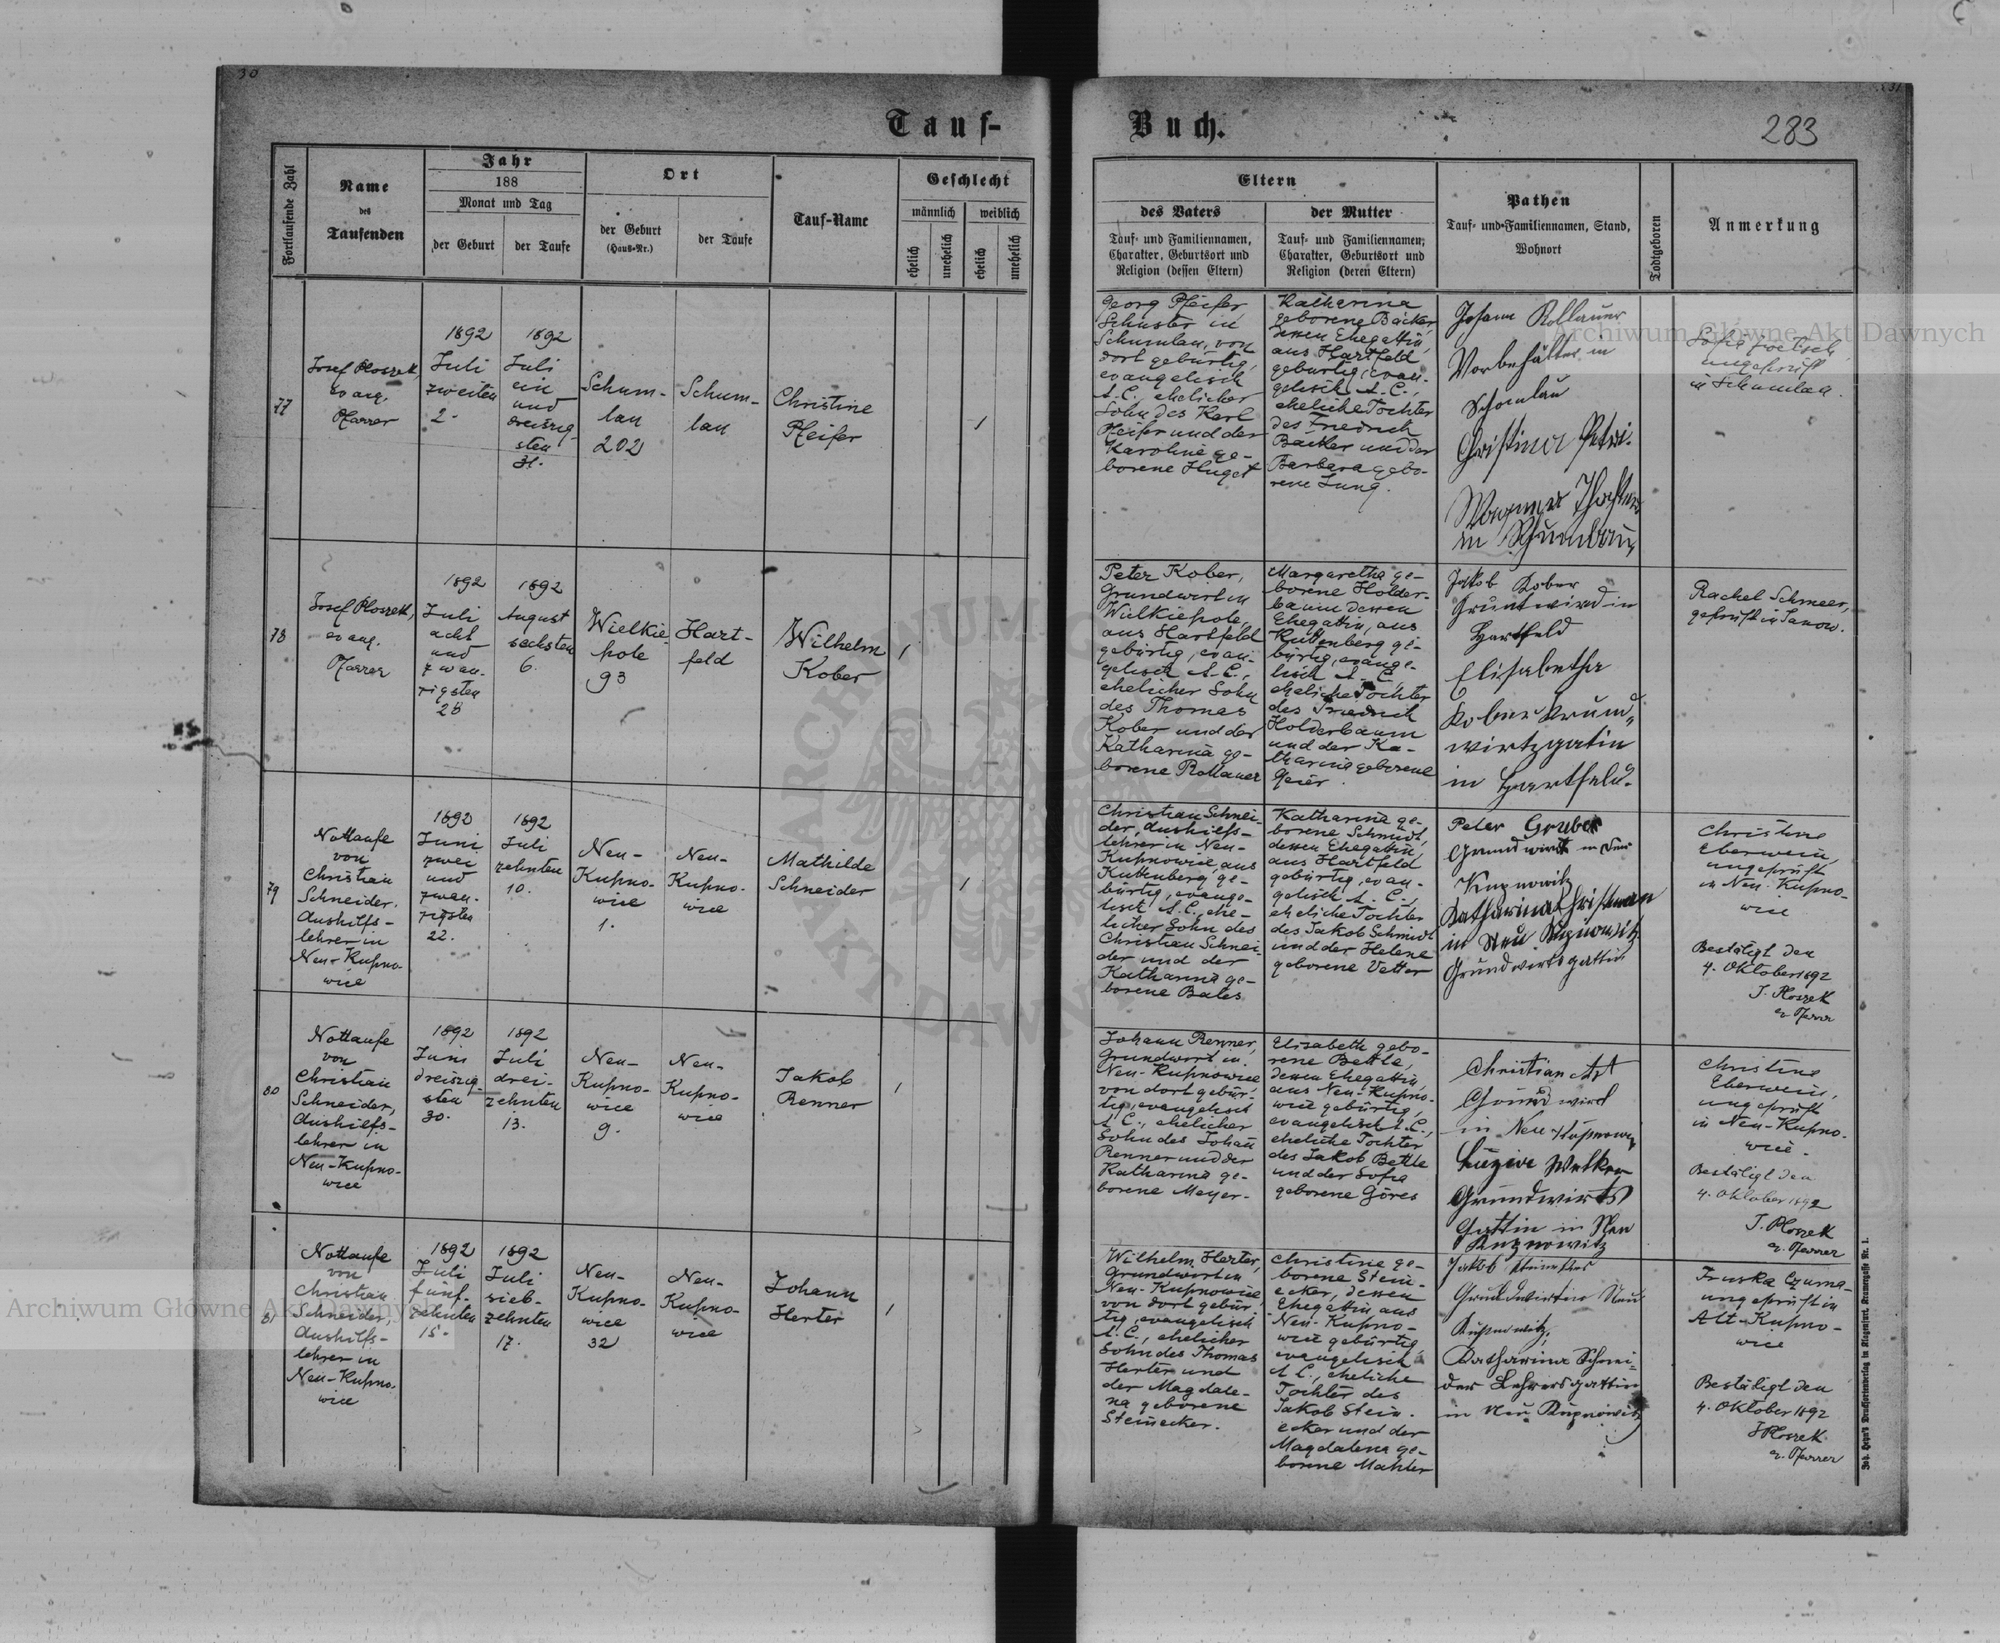 30
31
Tauf-
Buch.
283
Fortlaufende Zahl
Name
des
Taufenden
Jahr
188
Monat und Tag
der Geburt
der Taufe
Ort
der Geburt
(Haus-Nr.)
der Taufe
Tauf-Name
Geschlecht
männlich
weiblich
ehelich
unehelich
ehelich
unehelich
Eltern
des Vaters
Tauf- und Familiennamen,
Charakter, Geburtsort und
Religion (dessen Eltern)
der Mutter
Tauf- und Familiennamen,
Charakter, Geburtsort und
Religion (deren Eltern)
Pathen
Tauf- und Familiennamen, Stand,
Wohnort
Todtgeboren
Anmerkung
77
Josef Ploszek,
evang.
Pfarrer
1892
Juli
zweiten
2.
1892
Juli
ein
und
dreiszig-
sten
31.
Schum-
lau
202
Schum-
lau
Christine
Pfeifer
1
Georg Pfeifer,
Schuster in
Schumlau, von
dort gebürtig,
evangelisch
A.C., ehelicher
Sohn des Karl
Pfeifer und der
Karoline ge-
borene Huget
Katharina
geborene Bäcker,
dessen Ehegattin,
aus Hartfeld
gebürtig, evan-
gelisch A.C.,
eheliche Tochter
des Friedrich
Bäcker und der
Barbara gebo-
rene Jung.
Johann Rollauer
in
Schomlau
Christina Petri
in
ungeprüft
in Schumlau.
78
Josef Ploszek,
evang.
Pfarrer
1892
Juli
acht
und
zwan-
zigsten
28
1892
August
sechsten
6.
Wielkie-
pole
93
Hart-
feld
Wilhelm
Kober
1
Peter Kober,
Grundwirt in
Wielkiepole,
aus Hartfeld
gebürtig, evan-
gelisch A.C.,
ehelicher Sohn
des Thomas
Kober und der
Katharina ge-
borene Rollauer
Margaretha ge-
borene Holder-
baum dessen
Ehegattin, aus
Kuttenberg ge-
bürtig, evange-
lisch A.C.,
eheliche Tochter
des Friedrich
Holderbaum
und der Ka-
tharina geborene
Geier.
Jakob Kober
Gruntwird in
Hartfeld
Elisabetha
Kober Krund-
wirtzgatin
in Hartfeld.
Rachel Schmeer,
geprüft in Janow.
79
Nottaufe
von
Christian
Schneider,
Aushilfs-
lehrer in
Neu-Kupno-
wice
1892
Juni
zwei
und
zwan-
zigsten
22.
1892
Juli
zehnten
10.
Neu-
Kupno-
wice
1.
Neu-
Kupno-
wice
Mathilde
Schneider
1
Christian Schnei-
der, Aushilfs-
lehrer in Neu-
Kupnowice, aus
Kuttenberg ge-
bürtig, evange-
lisch A.C., ehe-
licher Sohn des
Christian Schnei-
der und der
Katharina ge-
borene Bales
Katharina ge-
borene Schmidt,
dessen Ehegattin,
aus Hartfeld
gebürtig, evan-
gelisch A.C.,
eheliche Tochter
des Jakob Schmidt
und der Helene
geborene Vetter
Peter Gruber
Grundwirt in Neu
Kupnowitz
Katharina Chrisman
in Neu Kupnowitz
Grundwirtsgattin
Christine
Eberwein,
ungeprüft
in Neu-Kupno-
wice
Bestätigt den
4. Oktober 1892
J. Ploszek
ev. Pfarrer
80
Nottaufe
von
Christian
Schneider,
Aushilfs-
lehrer in
Neu-Kupno-
wice
1892
Juni
dreiszig-
sten
30.
1892
Juli
drei-
zehnten
13.
Neu-
Kupno-
wice
9.
Neu-
Kupno-
wice
Jakob
Renner
1
Johann Renner,
Grundwirt in
Neu-Kupnowice
von dort gebür-
tig, evangelisch
A.C., ehelicher
Sohn des Johann
Renner und der
Katharina ge-
borene Meyer.
Elisabeth gebo-
rene Bettle,
dessen Ehegattin,
aus Neu-Kupno-
wice gebürtig,
evangelisch A.C.,
eheliche Tochter
des Jakob Bettle
und der Sofia
geborene Göres
Christian Ast
Grundwird
in Neu-Kupnowice
Luzia Welker
Grundwirts
Gattin in Neu
Kupnowitz
Christine
Eberwein,
ungeprüft
in Neu-Kupno-
wice.
Bestätigt den
4. Oktober 1892
J. Ploszek
ev. Pfarrer
81
Nottaufe
von
Christian
Schneider,
Aushilfs-
lehrer in
Neu-Kupno-
wice
1892
Juli
fünf-
zehnten
15.
1892
Juli
sieb-
zehnten
17.
Neu-
Kupno-
wice
32
Neu-
Kupno-
wice
Johann
Herter
1
Wilhelm Herter,
Grundwirt in
Neu-Kupnowice,
von dort gebür-
tig, evangelisch
A.C., ehelicher
Sohn des Thomas
Herter und
der Magdale-
na geborene
Steinecker.
Christine ge-
borene Stein-
ecker, dessen
Ehegattin aus
Neu-Kupno-
wice gebürtig,
evangelisch
A.C., eheliche
Tochter des
Jakob Stein-
ecker und der
Magdalena ge-
borene Mahler
Jakob
Grundwirt in Neu
Kupnowitz,
Katharina Schnei-
der Lehrersgattin
in Neu Kupnowitz
Fruska Czurna-
ungeprüft in
Alt-Kupno-
wice
Bestätigt den
4. Oktober 1892
J. Ploszek
ev. Pfarrer
Archiwum Główne Akt Dawnych
Archiwum Główne Akt Dawnych
ARCHIWUM
AKT DAWNYCH